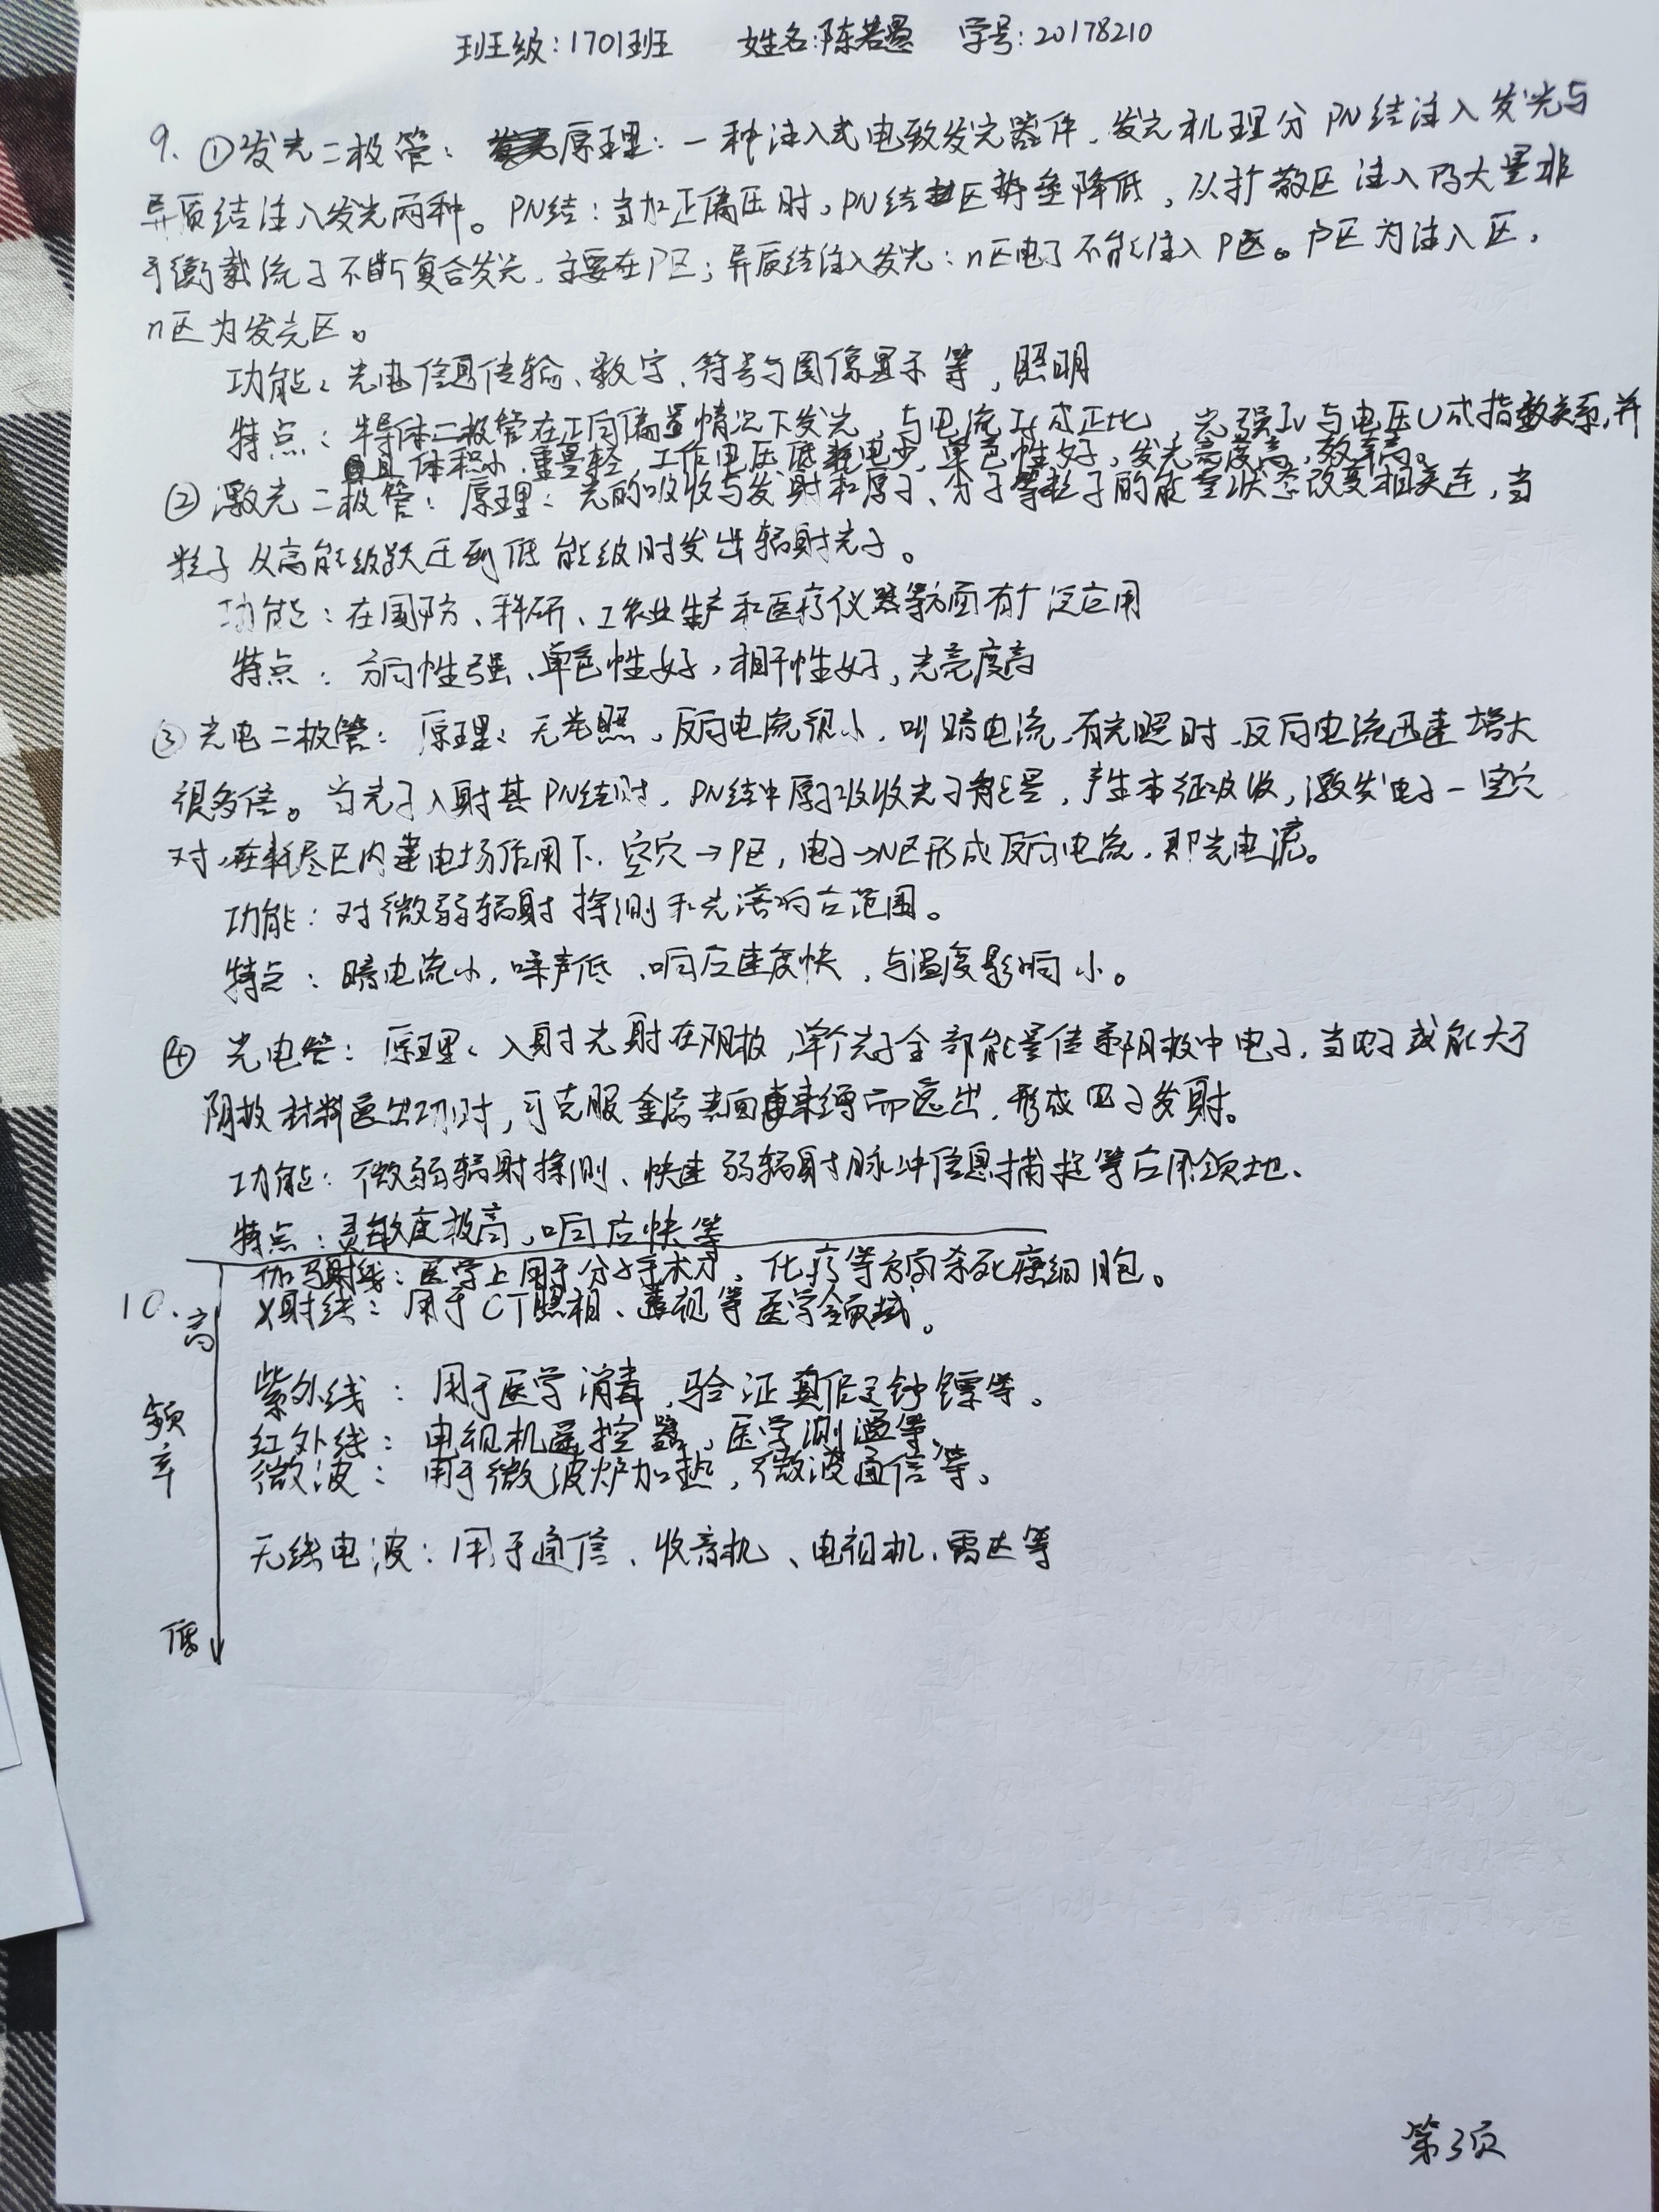 班级:1701班 姓名:陈若愚 学号:20178210
9. ①发光二极管: 原理:一种注入式电致发光器件,发光机理分PN结注入发光与
异质结注入发光两种。PN结:当加正偏压时,PN结区势垒降低,以扩散区注入的大量非
平衡载流子不断复合发光,主要在P区;异质结注入发光:n区电子不能注入P区。P区为注入区,
n区为发光区。
功能:光电信息传输、数字、符号与图像显示等,照明
特点:半导体二极管在正向偏置情况下发光,与电流If成正比,光强Iv与电压U成指数关系,并
且体积小,重量轻,工作电压低耗电少,单色性好,发光亮度高,效率高。
②激光二极管:原理:光的吸收与发射和原子、分子等粒子的能量状态改变相关连,当
粒子从高能级跃迁到低能级时发出辐射光子。
功能:在国防、科研、工农业生产和医疗仪器等方面有广泛应用
特点:方向性强、单色性好,相干性好,光亮度高
③光电二极管:原理:无光照,反向电流很小,叫暗电流,有光照时,反向电流迅速增大
很多倍。当光子入射其PN结时,PN结中原子吸收光子能量,产生本征吸收,激发电子-空穴
对,在耗尽区内建电场作用下,空穴→P区,电子→N区形成反向电流,即光电流。
功能:对微弱辐射探测和光谱响应范围。
特点:暗电流小,噪声低、响应速度快,与温度影响小。
④光电管:原理:入射光射在阴极,单个光子全部能量传递阴极中电子,当电子动能大于
阴极材料逸出功时,可克服金属表面束缚而逸出,形成电子发射。
功能:微弱辐射探测、快速弱辐射脉冲信息捕捉等应用领地、
特点:灵敏度极高,响应快等
10. 高 伽马射线:医学上用于分子手术刀,化疗等方面杀死癌细胞。
X射线:用于CT照相、透视等医学领域。
频率 紫外线:用于医学消毒,验证真假钞票等。
红外线:电视机遥控器,医学测温等,
微波:用于微波炉加热,微波通信等。
无线电波:用于通信、收音机、电视机、雷达等
低
第3页